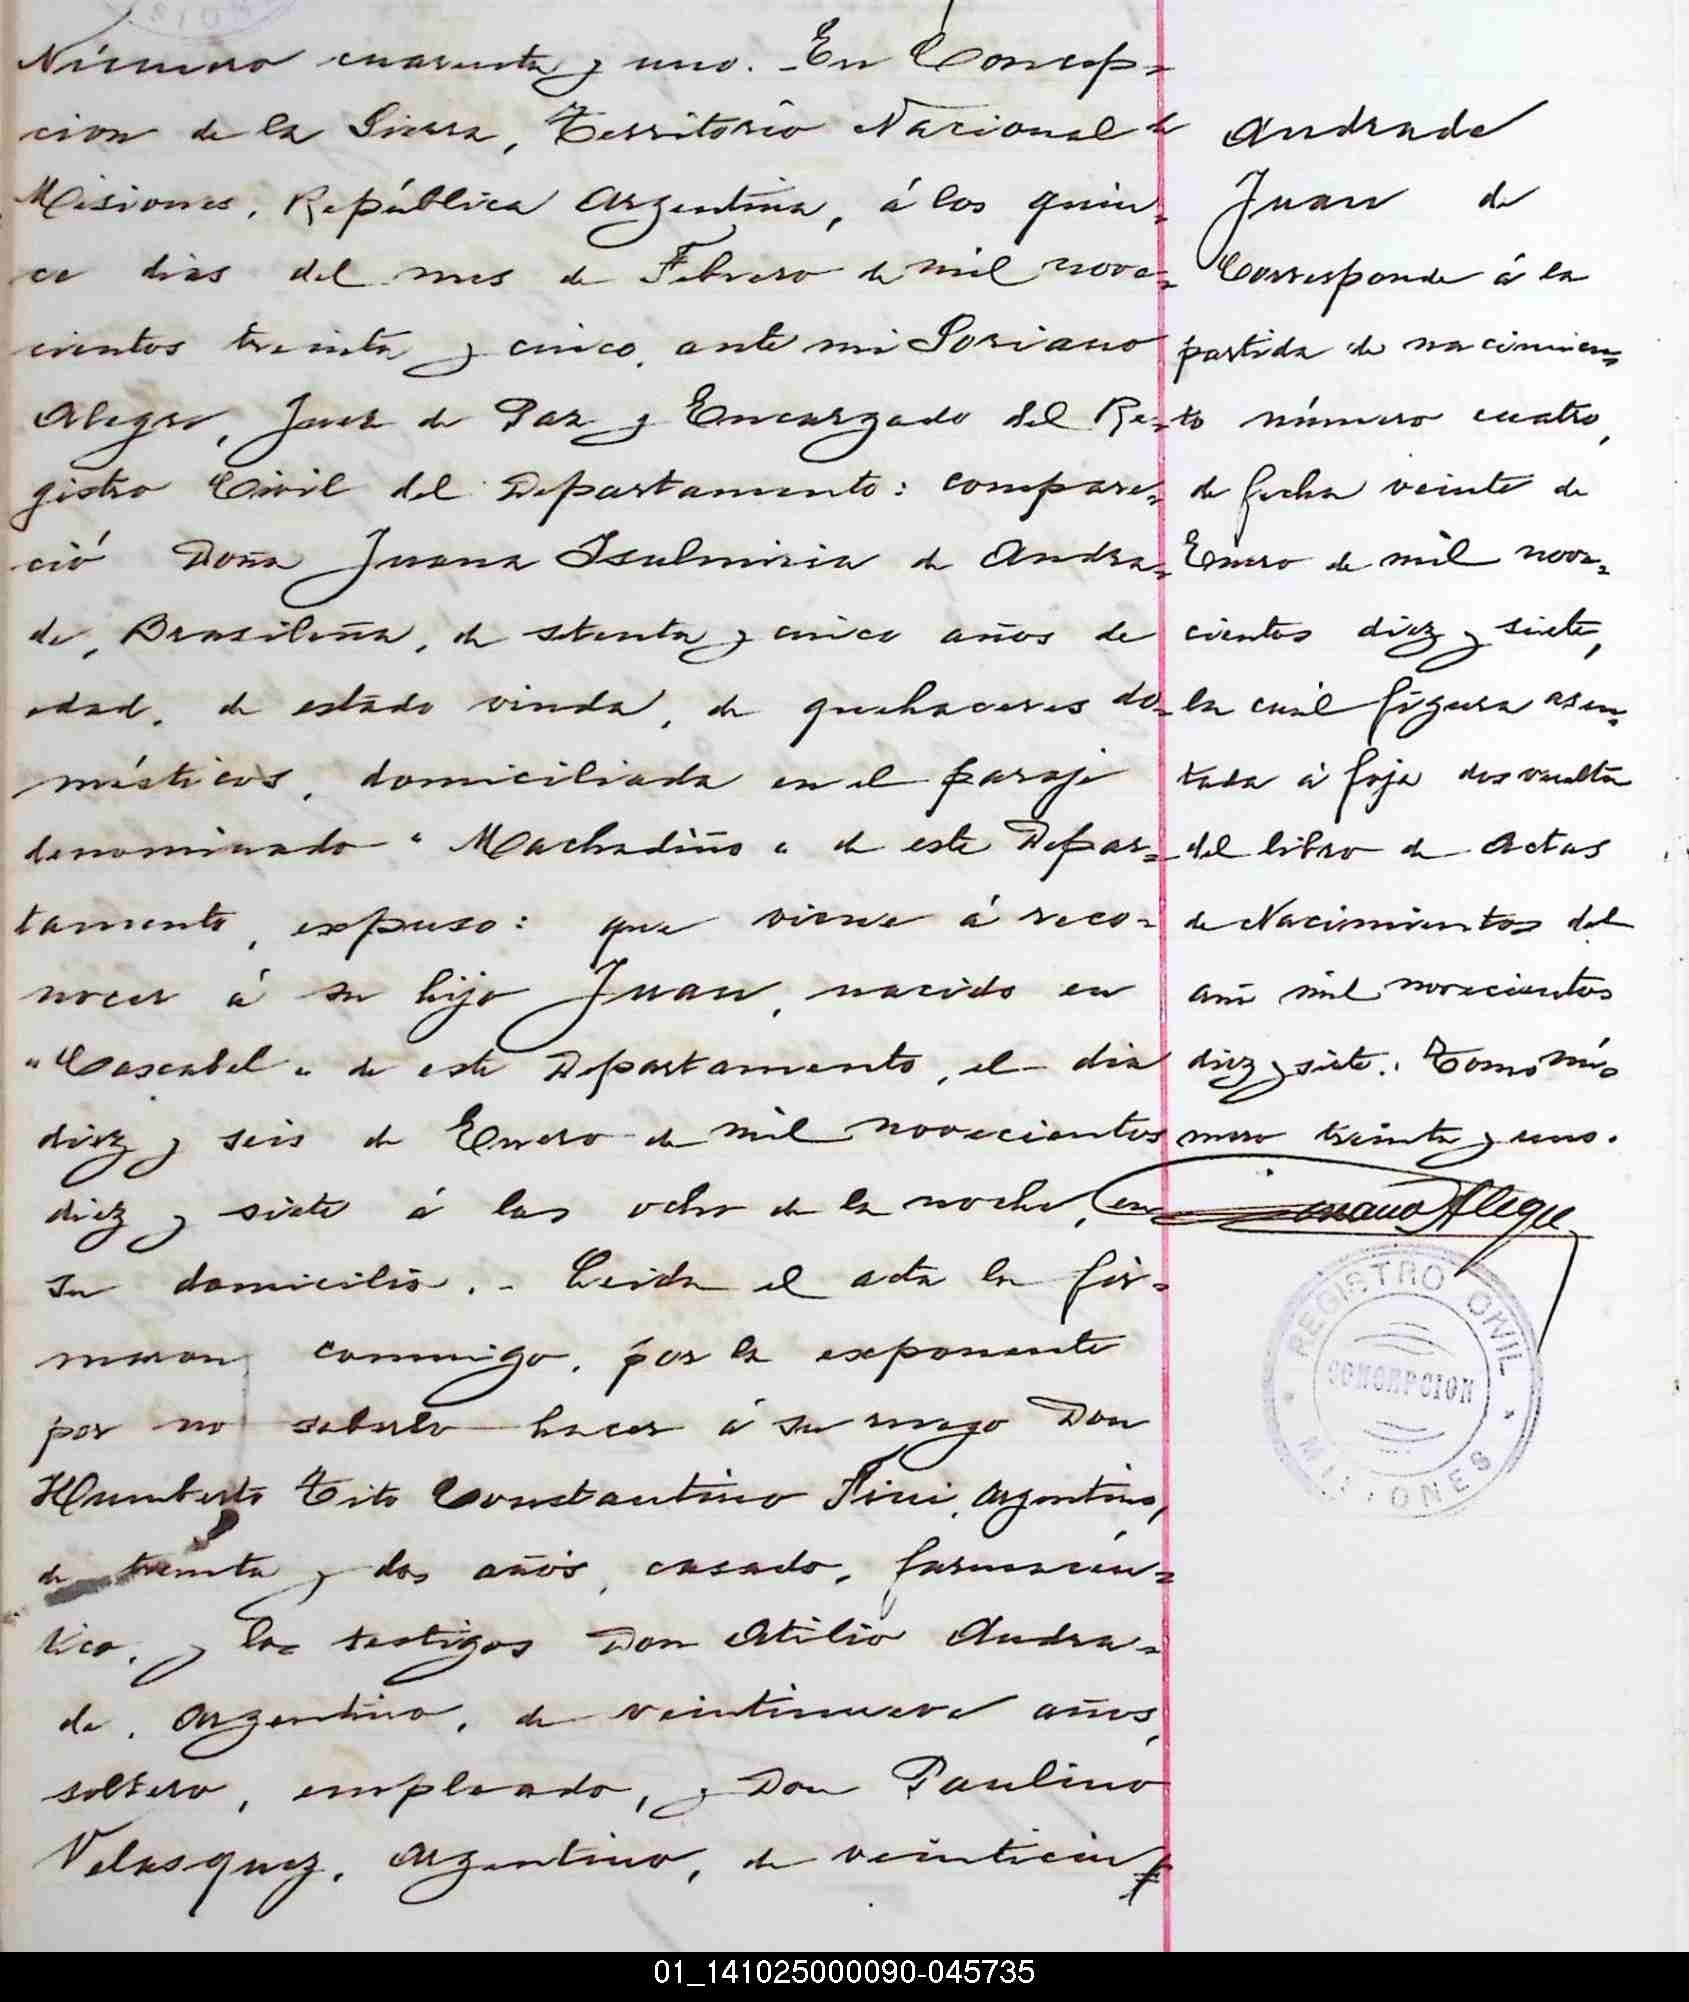 Número cuarenta y uno. - En Concep-
cion de la Sierra, Territorio Nacional de
Misiones, República Argentina, á los quin-
ce dias del mes de Febrero de mil nove-
cientos treinta y cinco, ante mi Soriano
Alegre, Juez de Paz y Encargado del Re-
gistro Civil del Departamento: compare-
ció Doña Juana Isulmiria de Andra-
de, Brasileña, de setenta y cinco años de
edad, de estado viuda, de quehaceres do-
mésticos, domiciliada en el paraje
denominado "Machadiño" de este Depar-
tamento, expuso: que viene á reco-
nocer á su hijo Juan, nacido en
"Cascabel" de este Departamento, el dia
diez y seis de Enero de mil novecientos
diez y siete á las ocho de la noche, en
su domicilio. - Leida el acta la fir-
maron conmigo, por la exponente
por no saberlo hacer á su ruego Don
Humberto Tito Constantino Fini, Argentino,
de treinta y dos años, casado, farmacéu-
tico, y los testigos Don Atilio Andra-
de, Argentino, de veintinueve años,
soltero, empleado, y Don Paulino
Velasquez, Argentino, de veinticin-
Andrade
Juan de
Corresponde á la
partida de nacimien-
to número cuatro,
de fecha veinte de
Enero de mil nove-
cientos diez y siete,
la cuál figura asen-
tada á foja dos vuelta
del libro de Actas
de Nacimientos del
año mil novecientos
diez y siete. Tomo nú-
mero treinta y uno.
Soriano Alegre
REGISTRO CIVIL
CONCEPCION
MISIONES
01_141025000090-045735